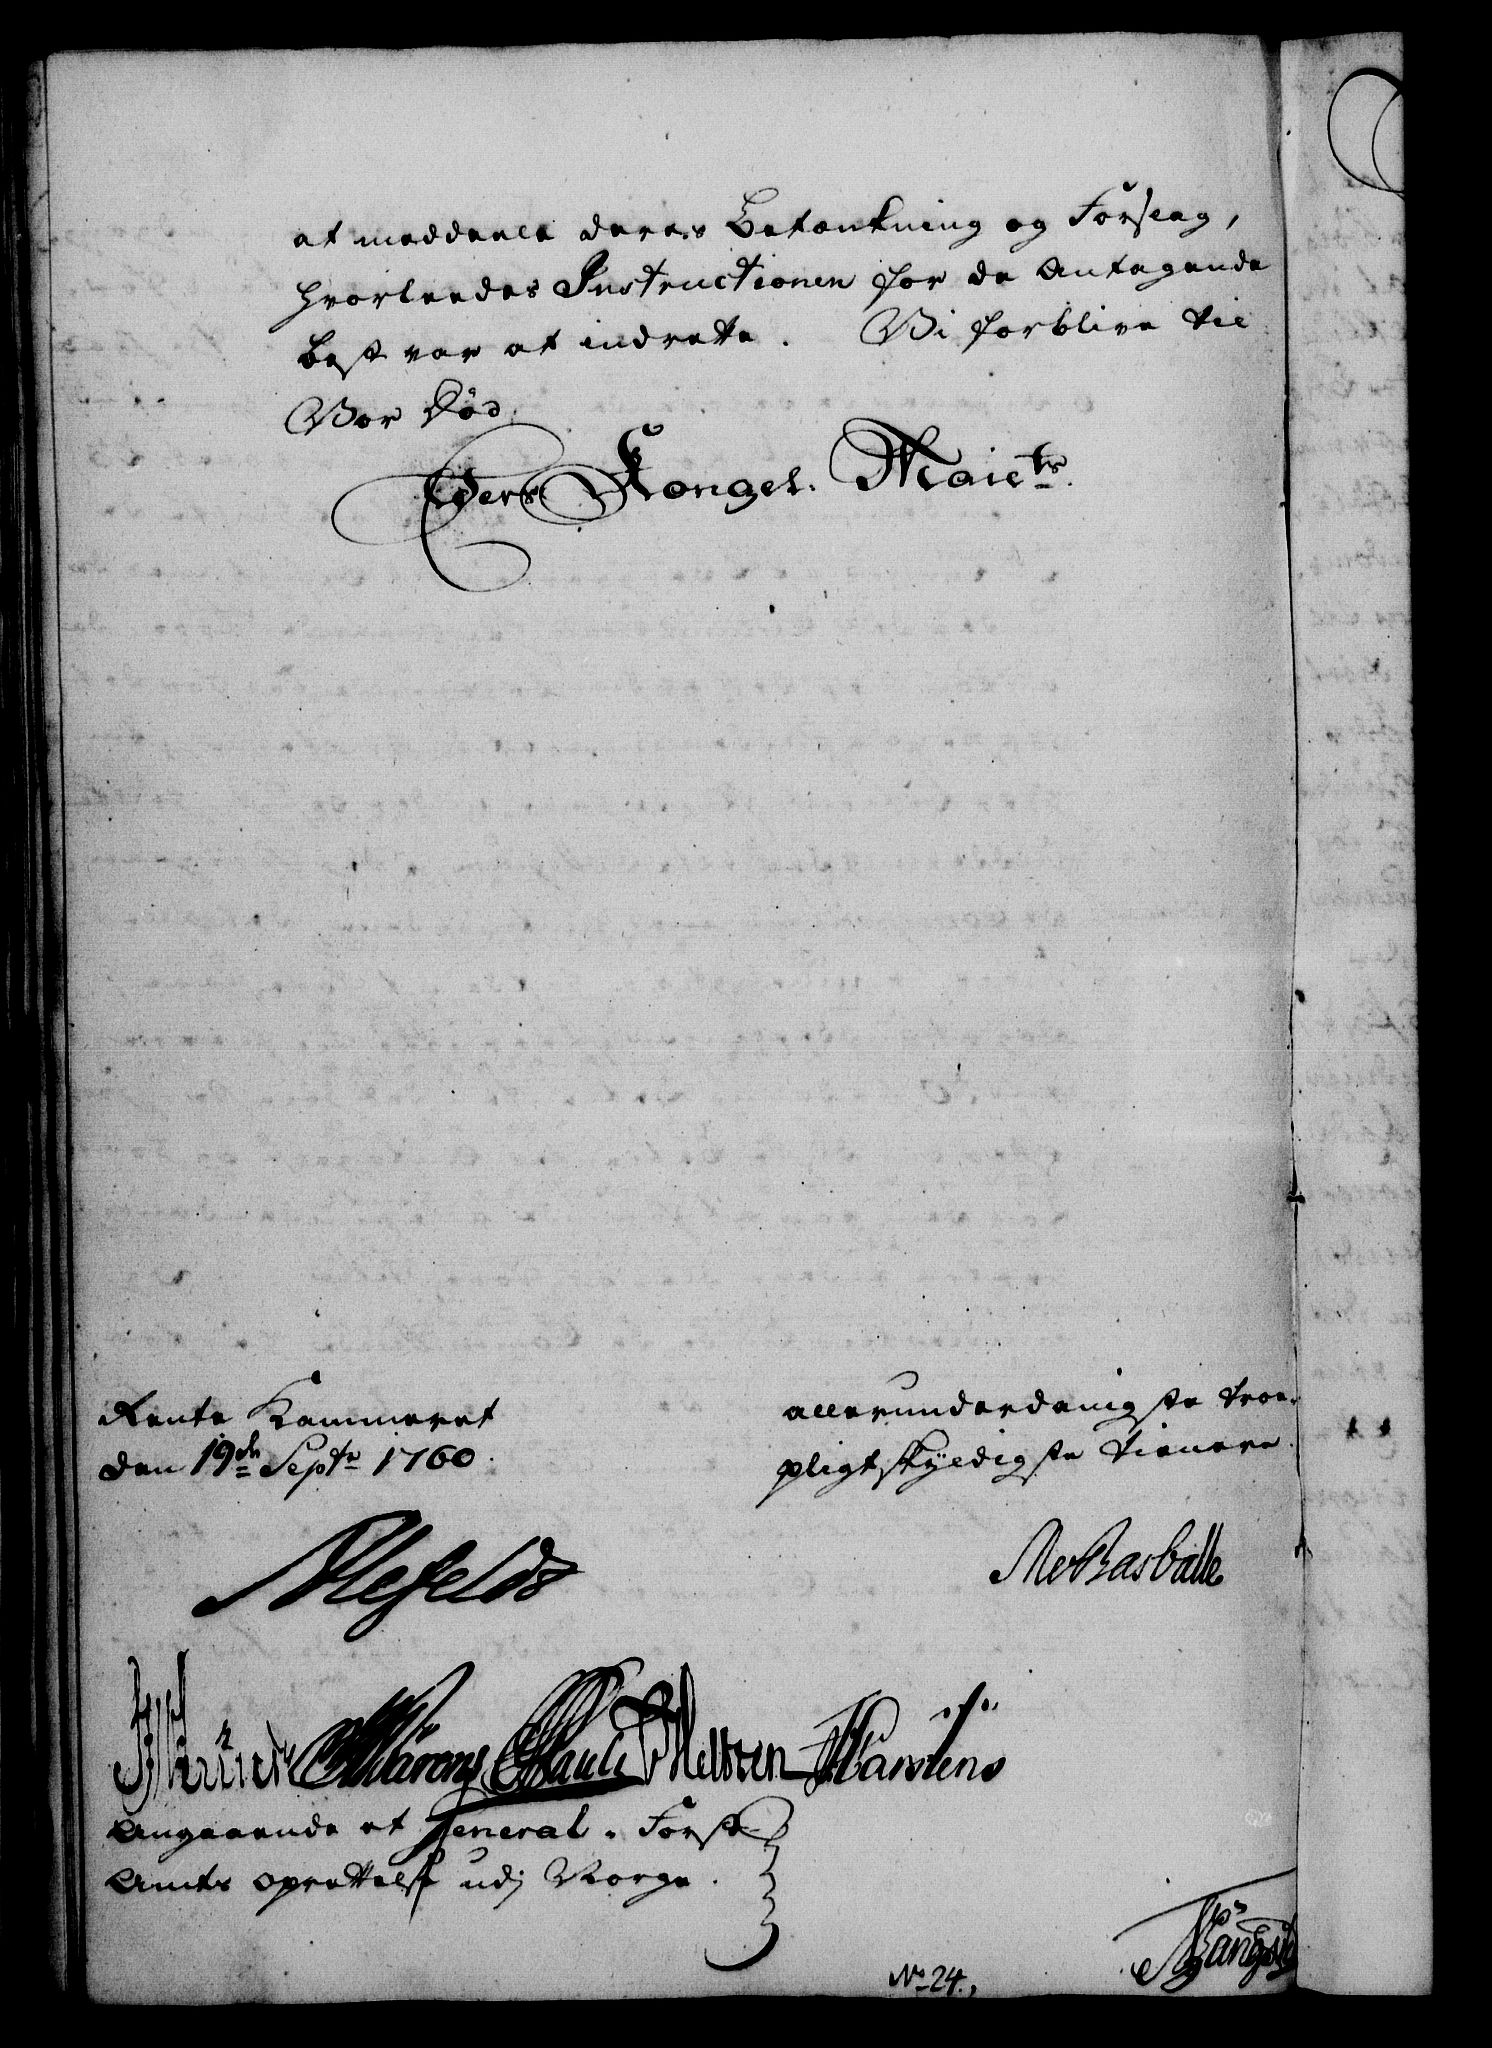 at meddeele deres Betænkning og Forslag,
hvorleedes Instructionen for de Antagende
best var at indrette. Vi forblive til
Vor Død
Eders Kongel. Maiets.
Rente Kammeret
den 19de Septr 1760.
allerunderdanigste troe-
pligtskyldigste tienere.
Alefeldt
Angaaende et General-Forst-
Amts oprettelse udj Norge.
No 24.